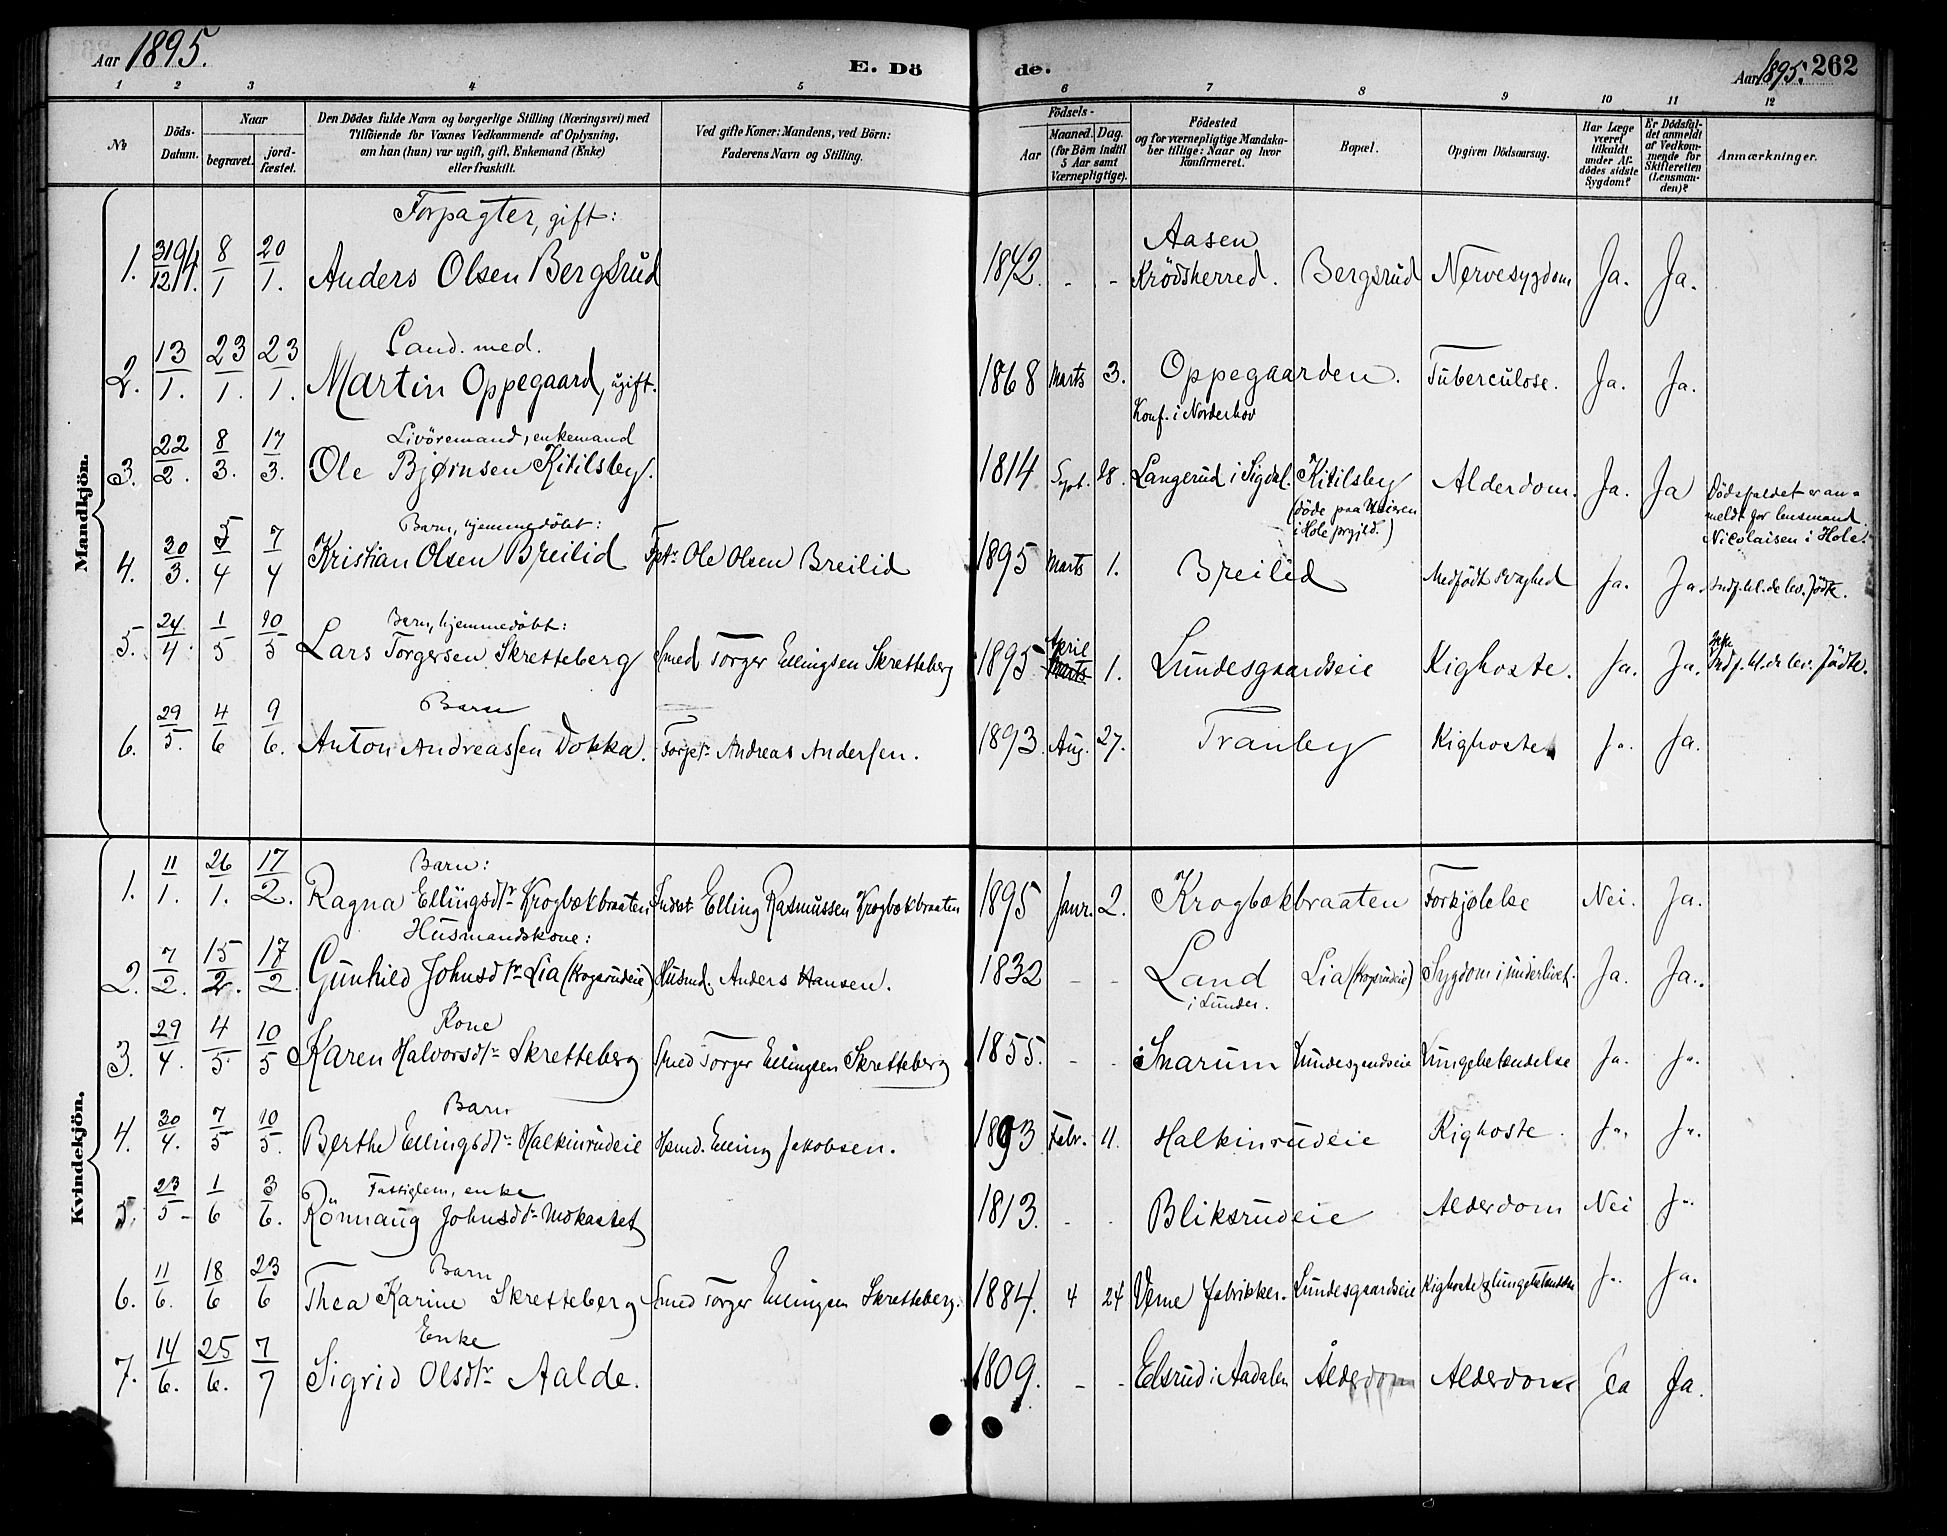 Aar 1895.
E. Dö
de.
Aar 1895. 262
1 2 3 4 5 6 7 8 9 10 11 12
№
Döds-Datum.
Naar
begravet.
jord-fæstet.
Den Dödes fulde Navn og borgerlige Stilling (Næringsvei) med
Tilföiende for Voxnes Vedkommende af Oplysning,
om han (hun) var ugift, gift, Enkemand (Enke)
eller fraskilt.
Ved gifte Koner: Mandens, ved Börn:
Faderens Navn og Stilling.
Födsels-
Aar
Maaned. Dag.
(for Börn indtil
5 Aar samt
Værnepligtige).
Födested
og for værnepligtige Mandska-
ber tillige: Naar og hvor
konfirmeret.
Bopæl.
Opgiven Dödsaarsag.
Har Læge
været
tilkaldt
under Af-
dödes sidste
Sygdom?
Er Dödsfal-
det anmeldt
af Vedkom-
mende for
Skifteretten
(Lensman-
den)?
Anmærkninger.
Mandkjön.
Forpagter, gift:
1. 31/12 94. 8/1 20/1. Anders Olsen Bergsrud 1842. - - Aasen Krödsherred. Bergsrud Nervesygdom Ja. Ja.
Cand. med.
2. 13/1. 23/1. 23/1. Martin Oppegaard, ugift. 1868 Marts 3. Oppegaarden. Tuberculose. Ja. Ja.
Konf. i Norderhov
Livöremand, enkemand
3. 22/2. 8/3. 17/3. Ole Bjørnsen Kitilsby. 1814 Sept. 28. Langerud i Sigdal. Kitilsby Alderdom. Ja. Ja
(döde paa
i Hole prgjld.)
Dödsfaldet er an-
meldt for lensmand
Nicolaisen i Hole.
Barn, hjemmedöbt:
4. 30/3. 5/4 7/4 Kristian Olsen Breilid Fpt. Ole Olsen Breilid 1895 Marts 1. Breilid Medfödt svaghed Ja. Ja. Indf. bl. de lev. födte.
Barn, hjemmedöbt:
5. 24/4. 1/5 10/5 Lars Torgersen Skretteberg Smed Torger Ellingsen Skretteberg 1895 April Marts 1. Lundesgaardseie Kighoste. Ja. Ja. Ikke Indf. bl. de lev. födte.
Barn
6. 29/5. 4/6 9/6. Anton Andreassen Dokka. Forpt. Andreas Andersen. 1893. Aug. 27. Tranby Kighoste. Ja. Ja.
Kvindekjön.
Barn:
1. 11/1. 26/1. 17/2. Ragna Ellingsdtr Krogbækbraaten Inderst Elling Rasmussen Krogbækbraaten 1895 Janr. 2. Krogbækbraaten Forkjølelse Nei. Ja.
Husmandskone:
2. 7/2. 15/2. 17/2 Gunhild Johnsdtr Lia (Kogsrudeie) Husmd. Anders Hansen. 1832 - - Land Lia (Kogsrudeie) Sygdom i underlivet. Ja. Ja.
i Lunder.
Kone
3. 29/4. 4/5. 10/5 Karen Halvorsdtr Skretteberg Smed Torger Ellingsen Skretteberg 1855. - - Snarum Lundesgaardseie Lungebetændelse Ja. Ja.
Barn
4. 30/4. 7/5 10/5. Berthe Ellingsdtr Halkinrudeie Hsmd. Elling Jakobsen. 1893 Febr. 11. Halkinrudeie Kighoste Ja. Ja.
Fattiglem, enke
5. 23/5 1/6 3/6. Rönnaug Johnsdtr Mokastet 1813. - - Bliksrudeie Alderdom Nei Ja.
Barn
6. 11/6. 18/6 23/6 Thea Karine Skretteberg Smed Torger Ellingsen Skretteberg. 1884. 4 24 Veme fabrikker. Lundesgaardseie Kighoste og Lungebetændelse Ja. Ja.
Enke
7. 14/6. 25/6. 7/7 Sigrid Olsdtr Aalde. 1809. - - Elsrud i Aadalen Alderdom Alderdom Ja Ja.